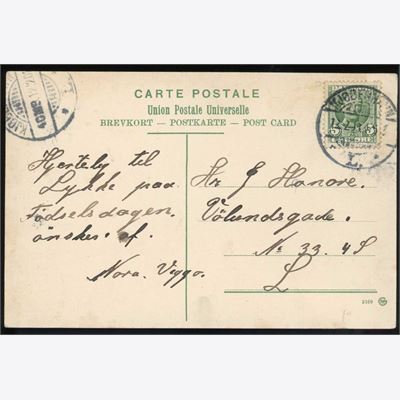 CARTE POSTALE
Union Postale Universelle
BREVKORT — POSTKARTE — POST CARD
Hjertelig til
Lykke paa
Fødselsdagen.
ønskes af.
Nora. Viggo.
Hr J Honore.
Vølundsgade.
№ 33. 4S
L
5 5